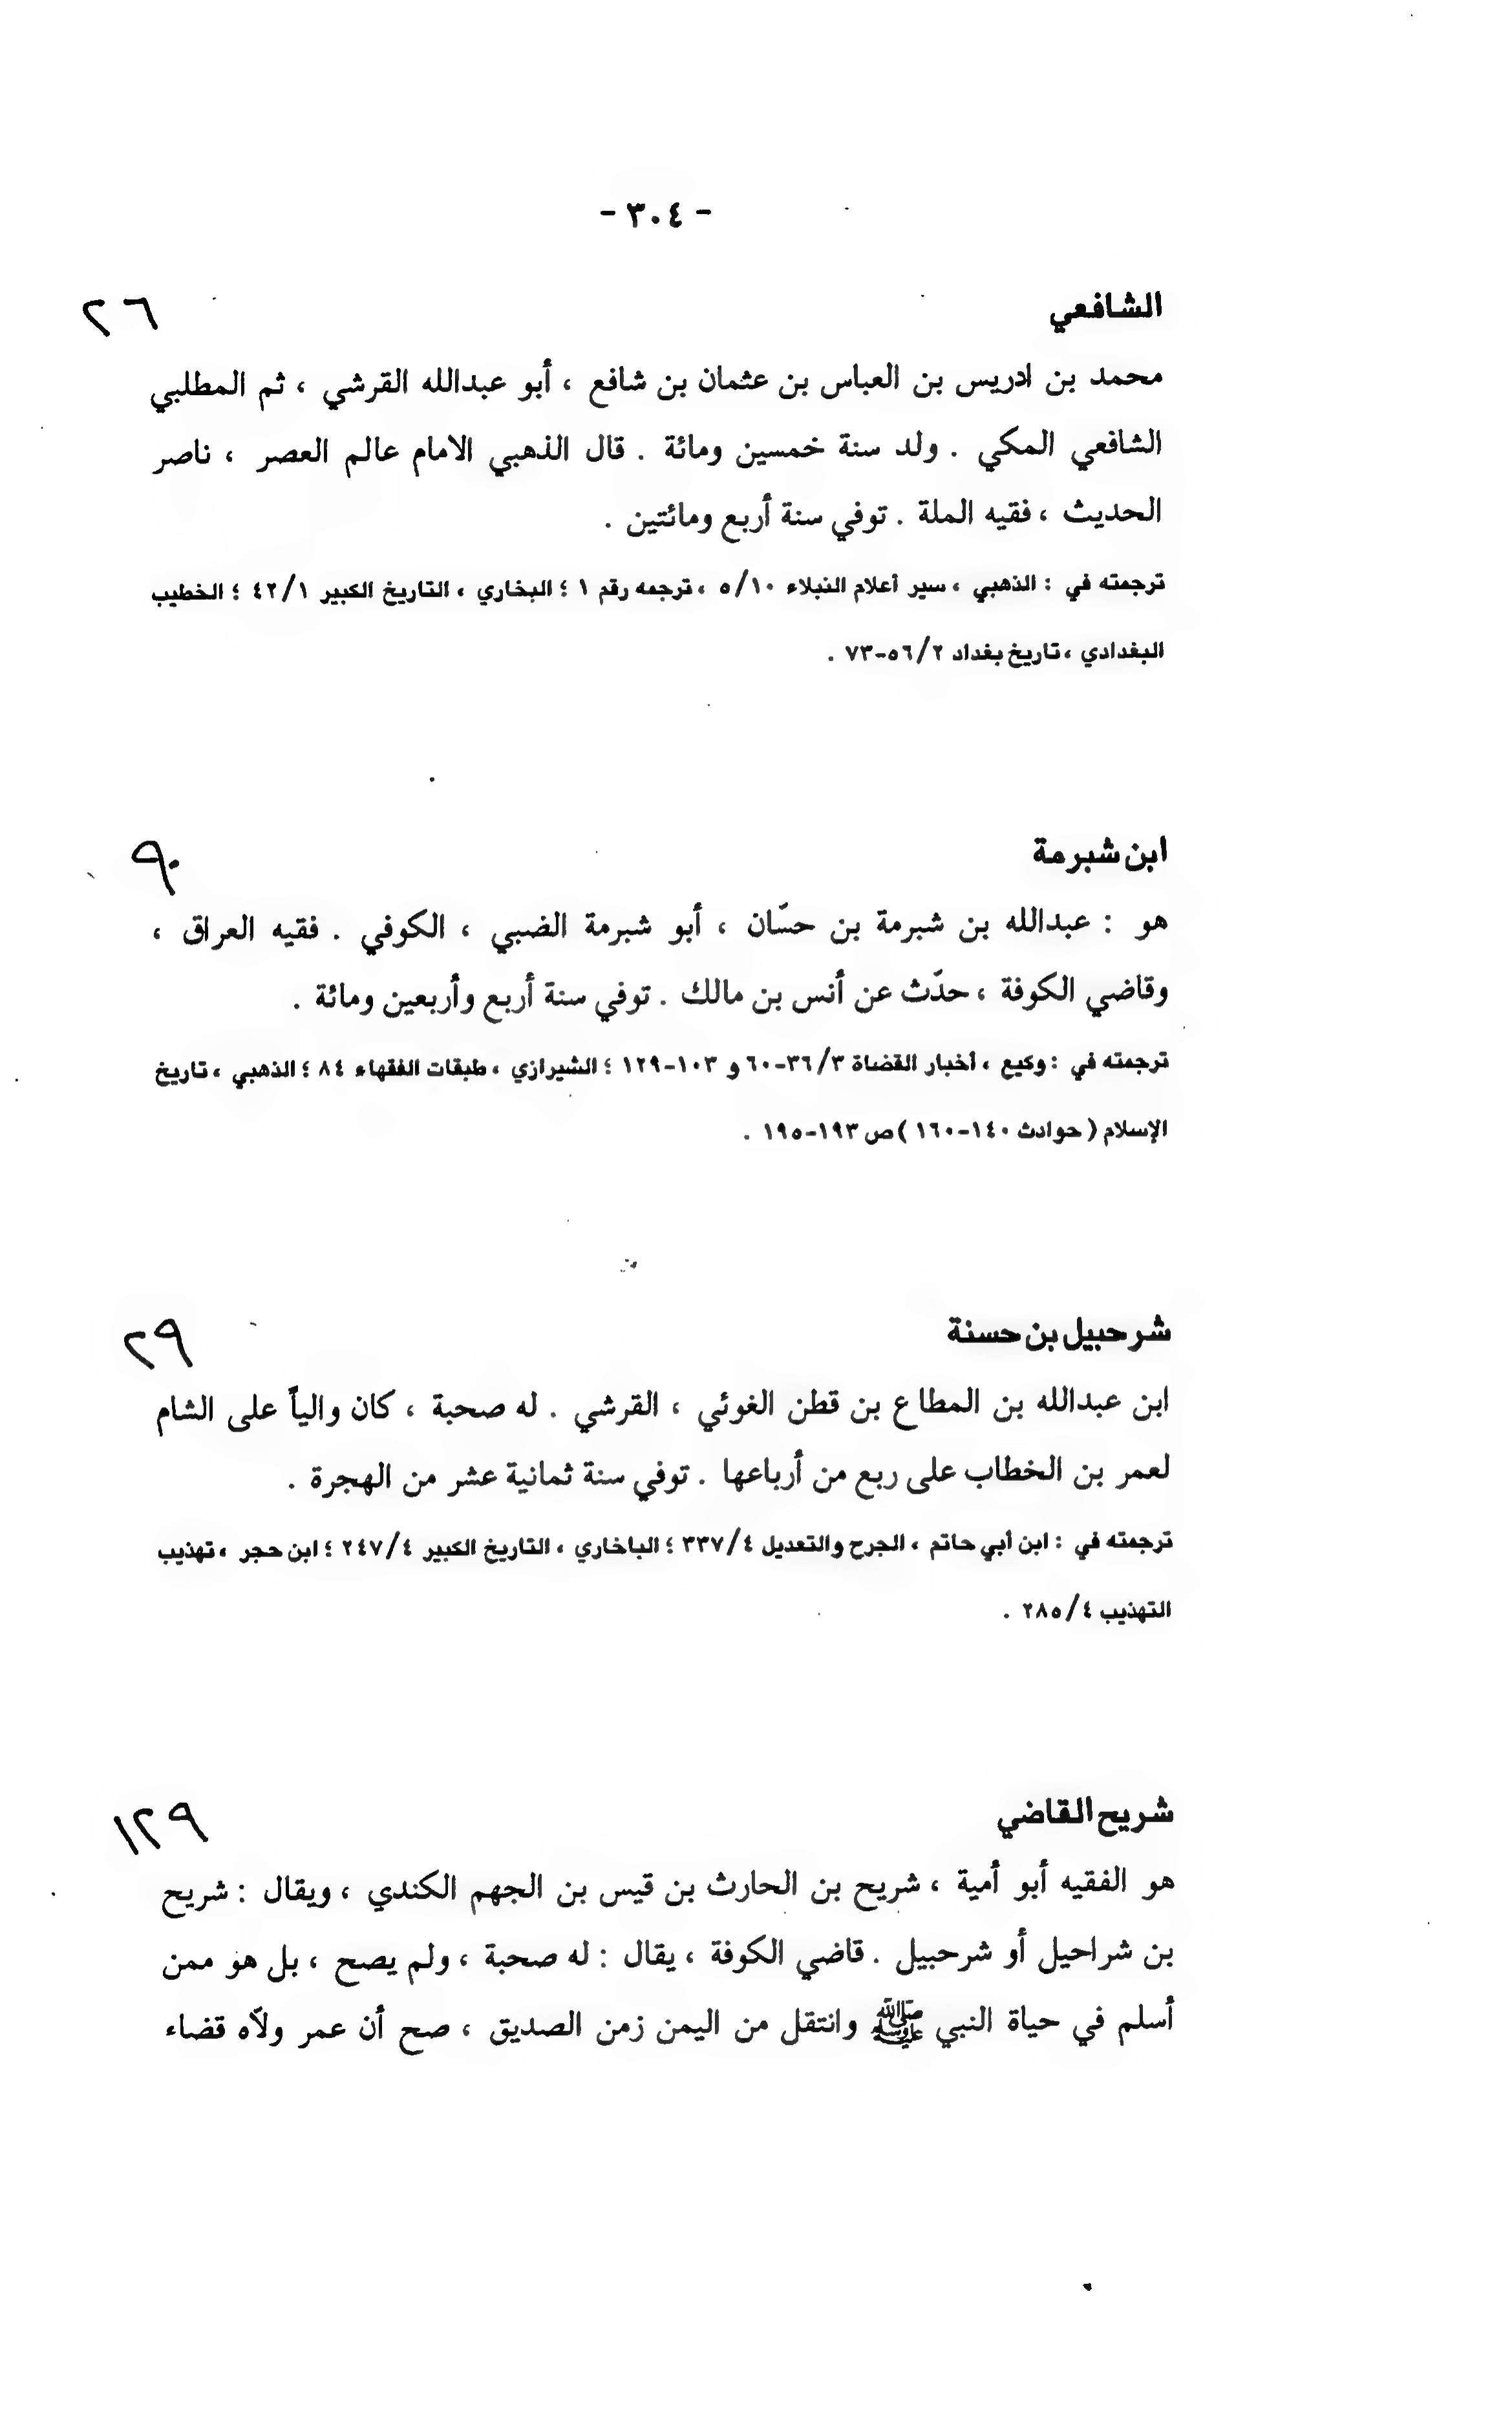 - ٣٠٤ -
الشافعي ٢٦
محمد بن ادريس بن العباس بن عثمان بن شافع ، أبو عبدالله القرشي ، ثم المطلبي
الشافعي المكي . ولد سنة خمسين ومائة . قال الذهبي الامام عالم العصر ، ناصر
الحديث ، فقيه الملة . توفي سنة أربع ومائتين .
ترجمته في : الذهبي ، سير أعلام النبلاء ٥/١٠ ، ترجمه رقم ١ ؛ البخاري ، التاريخ الكبير ٤٢/١ ؛ الخطيب
البغدادي ، تاريخ بغداد ٥٦/٢-٧٣ .
ابن شبرمة ٩٠
هو : عبدالله بن شبرمة بن حسّان ، أبو شبرمة الضبي ، الكوفي . فقيه العراق ،
وقاضي الكوفة ، حدّث عن أنس بن مالك . توفي سنة أربع وأربعين ومائة .
ترجمته في : وكيع ، أخبار القضاة ٣٦/٣-٦٠ و ١٠٣-١٢٩ ؛ الشيرازي ، طبقات الفقهاء ٨٤ ؛ الذهبي ، تاريخ
الإسلام ( حوادث ١٤٠-١٦٠ ) ص ١٩٣-١٩٥ .
شرحبيل بن حسنة ٢٩
ابن عبدالله بن المطاع بن قطن الغوئي ، القرشي . له صحبة ، كان والياً على الشام
لعمر بن الخطاب على ربع من أرباعها . توفي سنة ثمانية عشر من الهجرة .
ترجمته في : ابن أبي حاتم ، الجرح والتعديل ٣٣٧/٤ ؛ الباخاري ، التاريخ الكبير ٢٤٧/٤ ؛ ابن حجر ، تهذيب
التهذيب ٢٨٥/٤ .
شريح القاضي ١٢٩
هو الفقيه أبو أمية ، شريح بن الحارث بن قيس بن الجهم الكندي ، ويقال : شريح
بن شراحيل أو شرحبيل . قاضي الكوفة ، يقال : له صحبة ، ولم يصح ، بل هو ممن
أسلم في حياة النبي ﷺ وانتقل من اليمن زمن الصديق ، صح أن عمر ولاّه قضاء